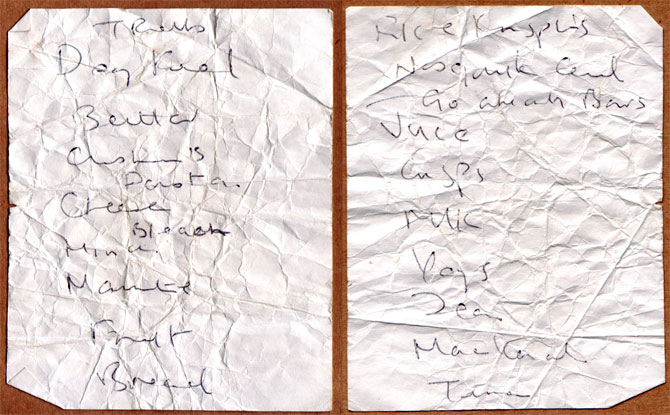 Dog Food
Butter
Pasta
Cheese
Bleach
Mince
Marmite
Fruit
Bread
Rice Krispi's
Nesquik Cereal
Go ahead Bars
Juice
Crisps
Milk
Tea
Mackeral
Tuna